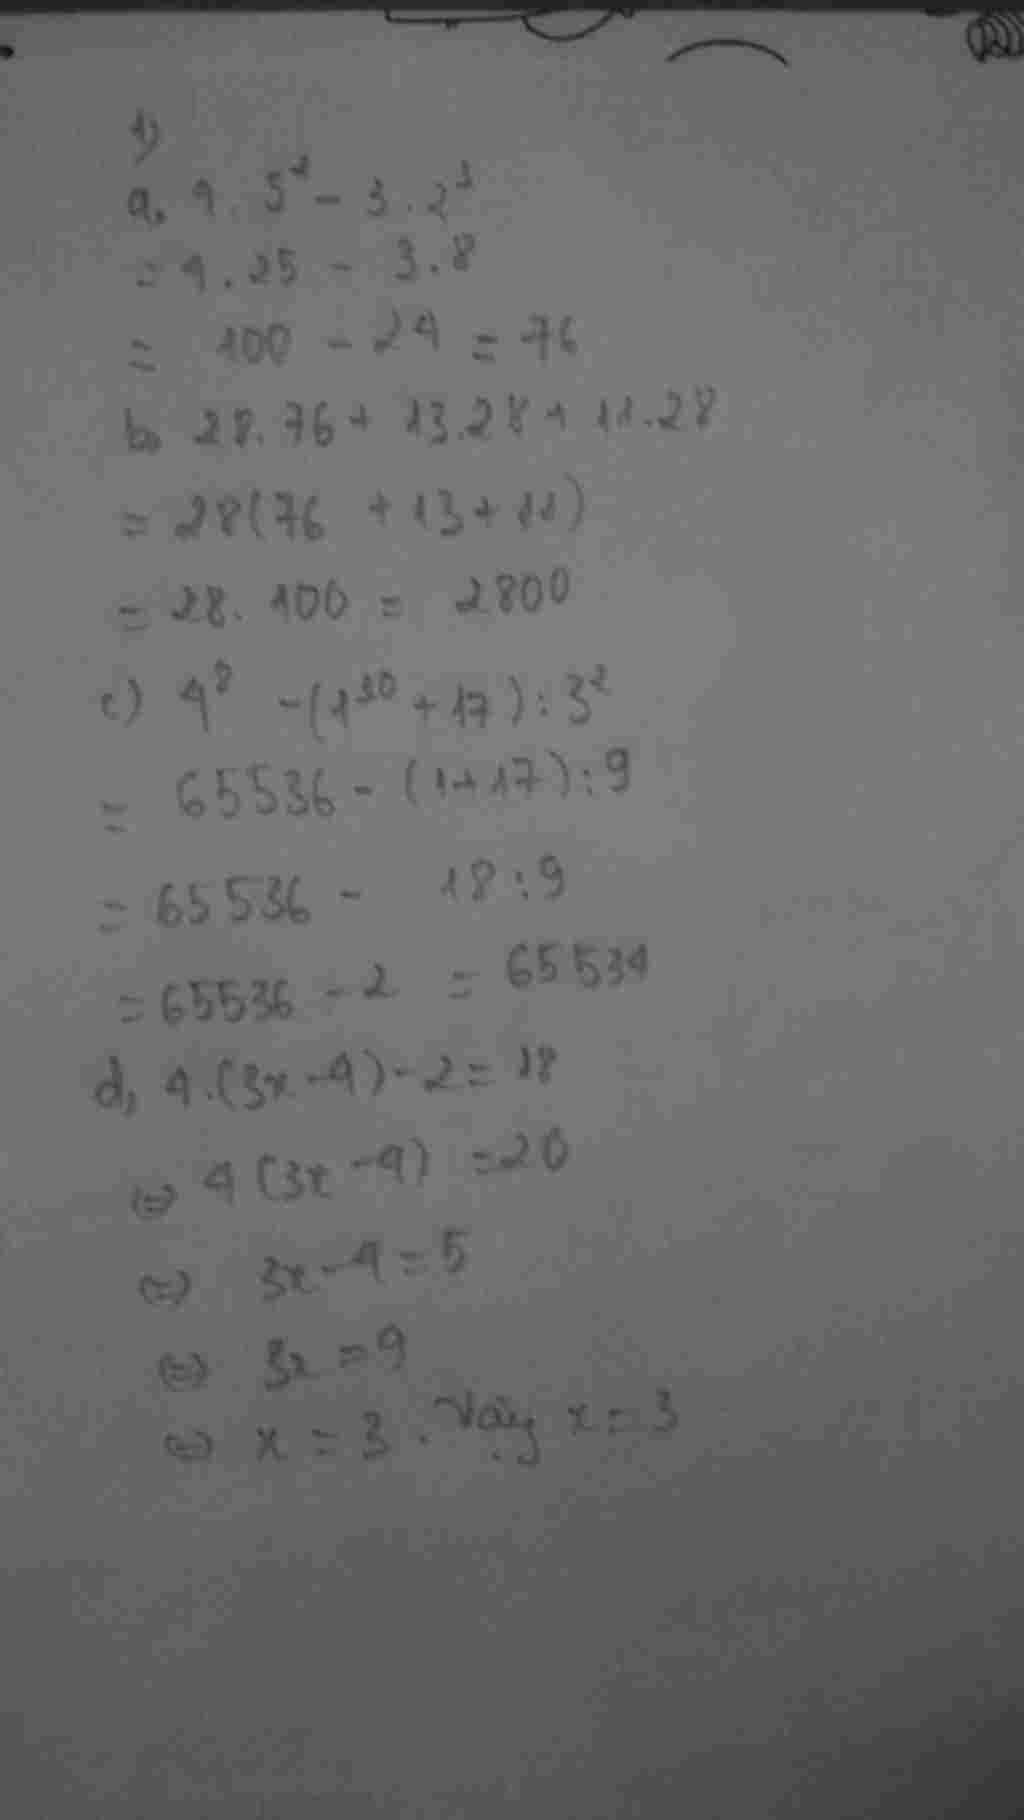 1)
a, 4. 5² - 3.2³
= 4.25 - 3.8
= 100 - 24 = 76
b, 28.76 + 13.28 + 11.28
= 28(76 + 13 + 11)
= 28. 100 = 2800
c) 4⁸ - (1³⁰ + 17) : 3²
= 65536 - (1+17) : 9
= 65536 - 18 : 9
= 65536 - 2 = 65534
d, 4.(3x-4) - 2 = 18
(=) 4(3x-4) = 20
(=) 3x-4 = 5
(=) 3x = 9
(=) x = 3. Vậy x = 3